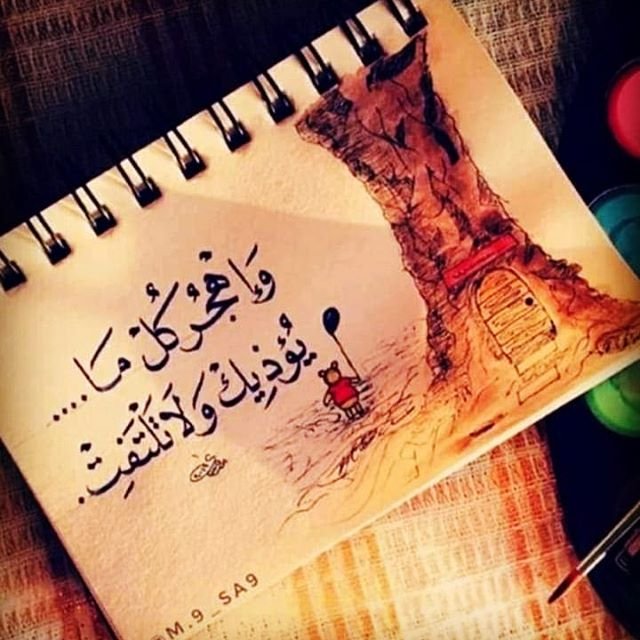 وَاهْجُر كُلْ مَا....
يُؤذِيكْ وَلَا تَلْتَفِتْ.
@M.9_SA9